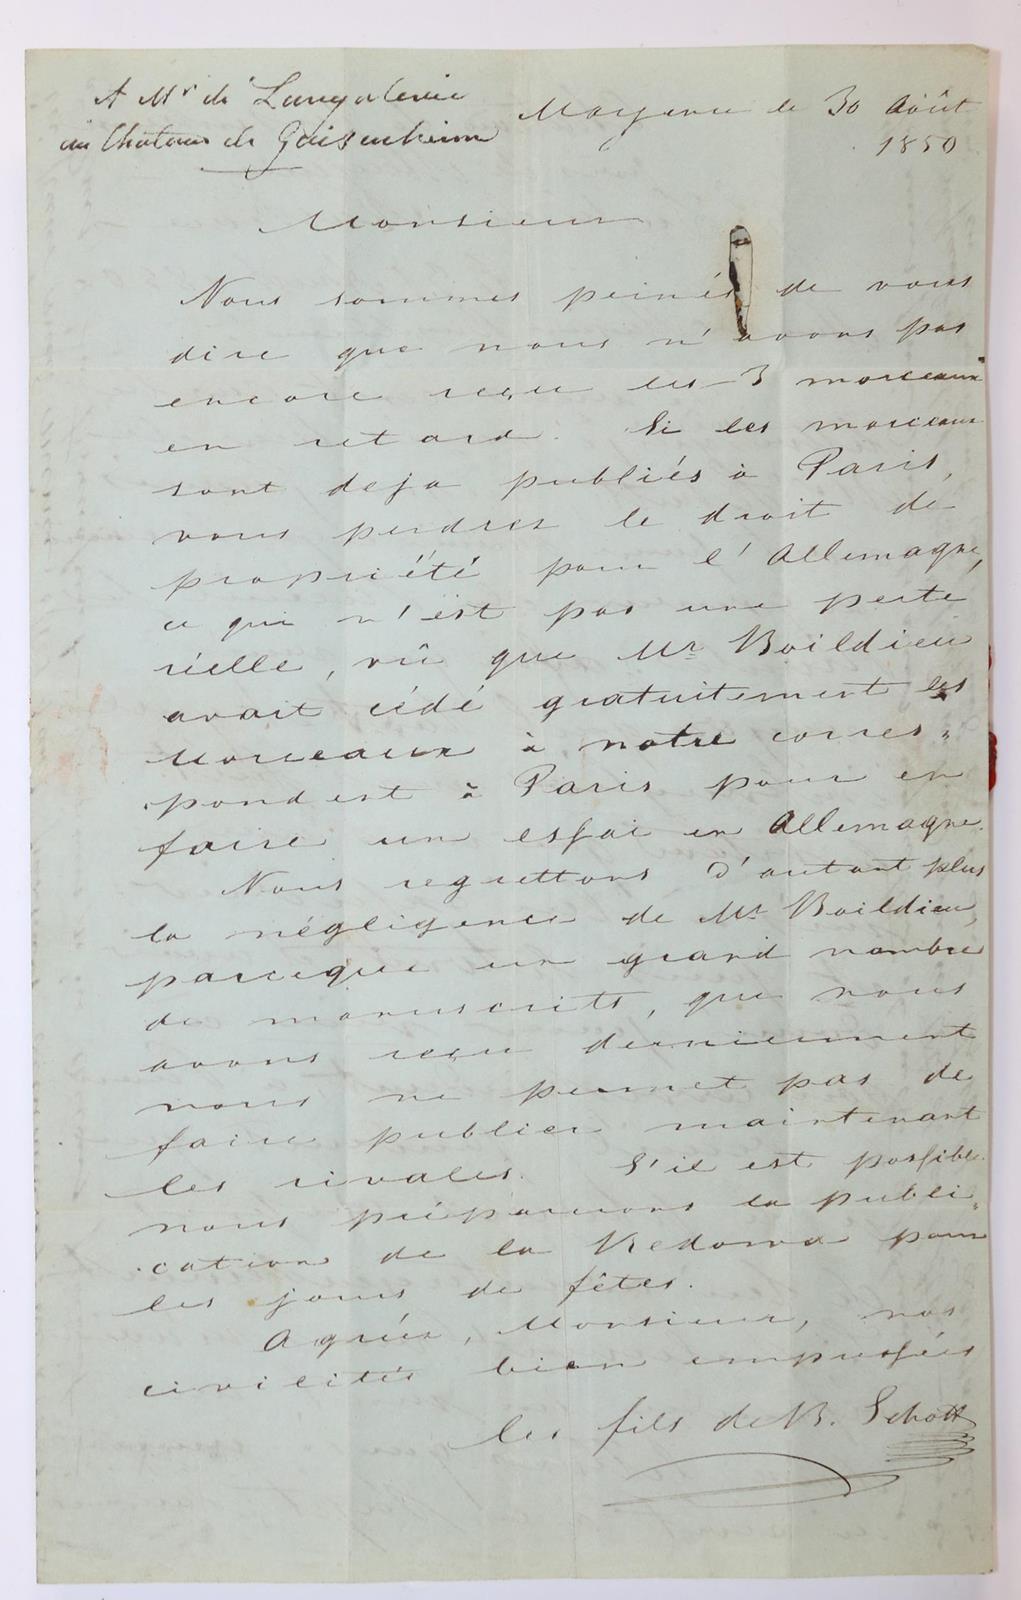 A Mr de Langalerie
au Chateau de Gaisenheim
Mayence le 30 Août
1850
Monsieur
Nous sommes peinés de vous
dire que nous n'avons pas
encore reçu les 3 morceaux
en retard. Si les morceaux
sont deja publiés à Paris,
vous perdrez le droit de
proprieté pour l'Allemagne,
ce qui n'est pas une perte
réelle, vû que Mr Boildieu
avait cédé gratuitement les
Morceaux à notre corres=
pondent à Paris pour en
faire un essai en Allemagne.
Nous regrettons d'autant plus
la négligence de Mr Boildieu,
parceque un grand nombre
de manuscrits, que nous
avons reçu dernierement
nous ne permet pas de
faire publier maintenant
les rivales. S'il est possible
nous préparerons la publi=
cation de la Redowa pour
les jours de fêtes.
Agréez, Monsieur, nos
civilités bien empressées
les fils de B. Schott